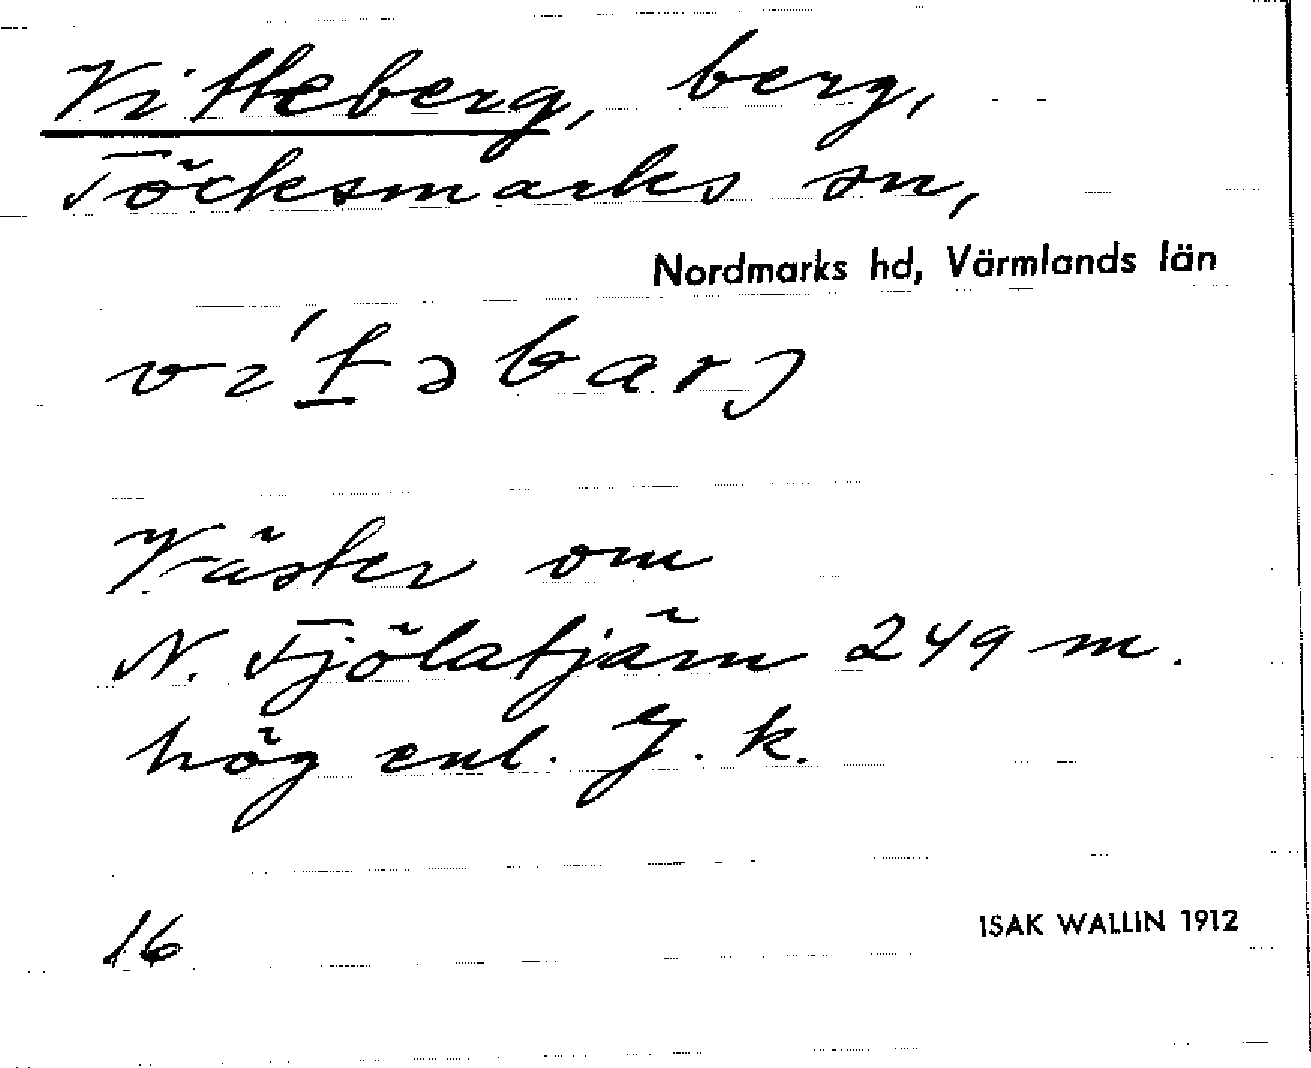 Vitteberg, berg,
Töcksmarks sn,
Nordmarks hd, Värmlands län
vi't̲əbarj
Väster om
N. Fjölatjärn 249 m.
hög enl. J. k.
16
ISAK WALLIN 1912